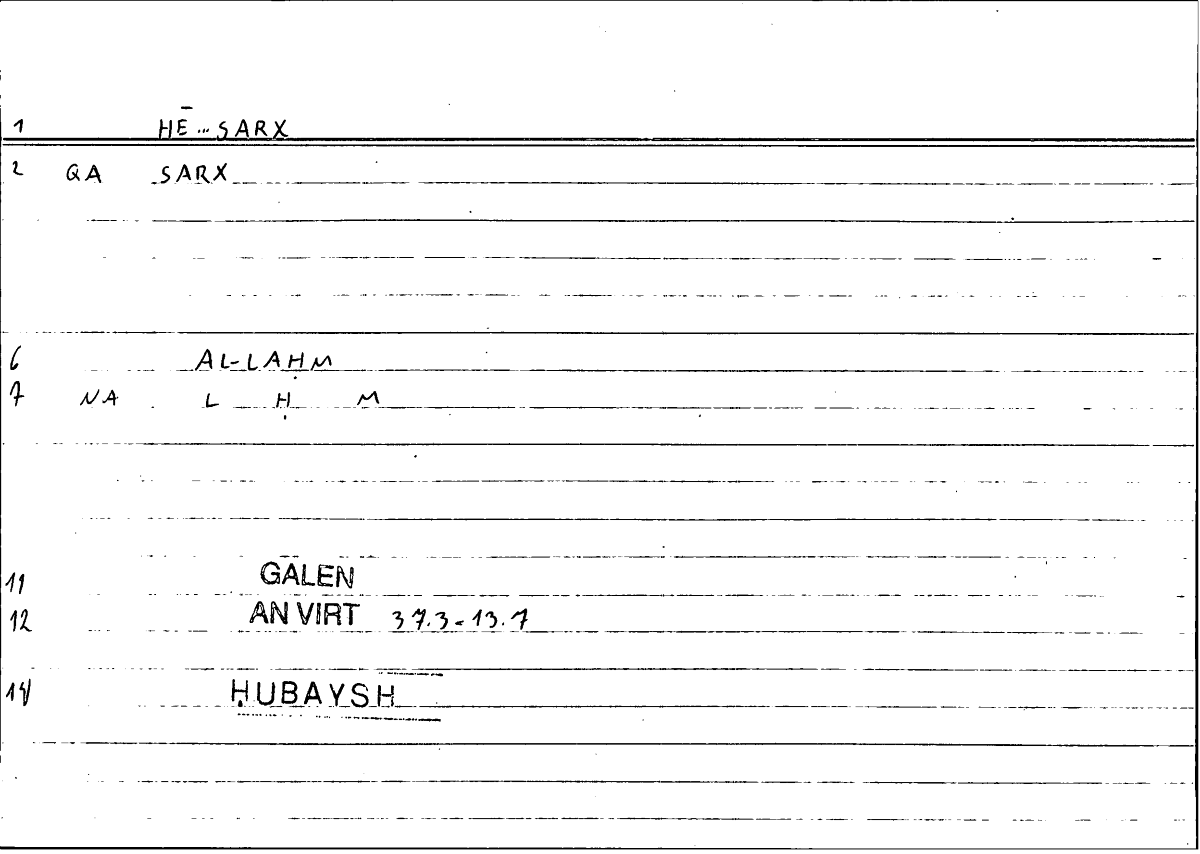 1 HĒ...SARX
2 QA SARX
6 AL-LAḤM
7 NA L Ḥ M
11 GALEN
12 AN VIRT 37.3-13.7
14 ḤUBAYSH